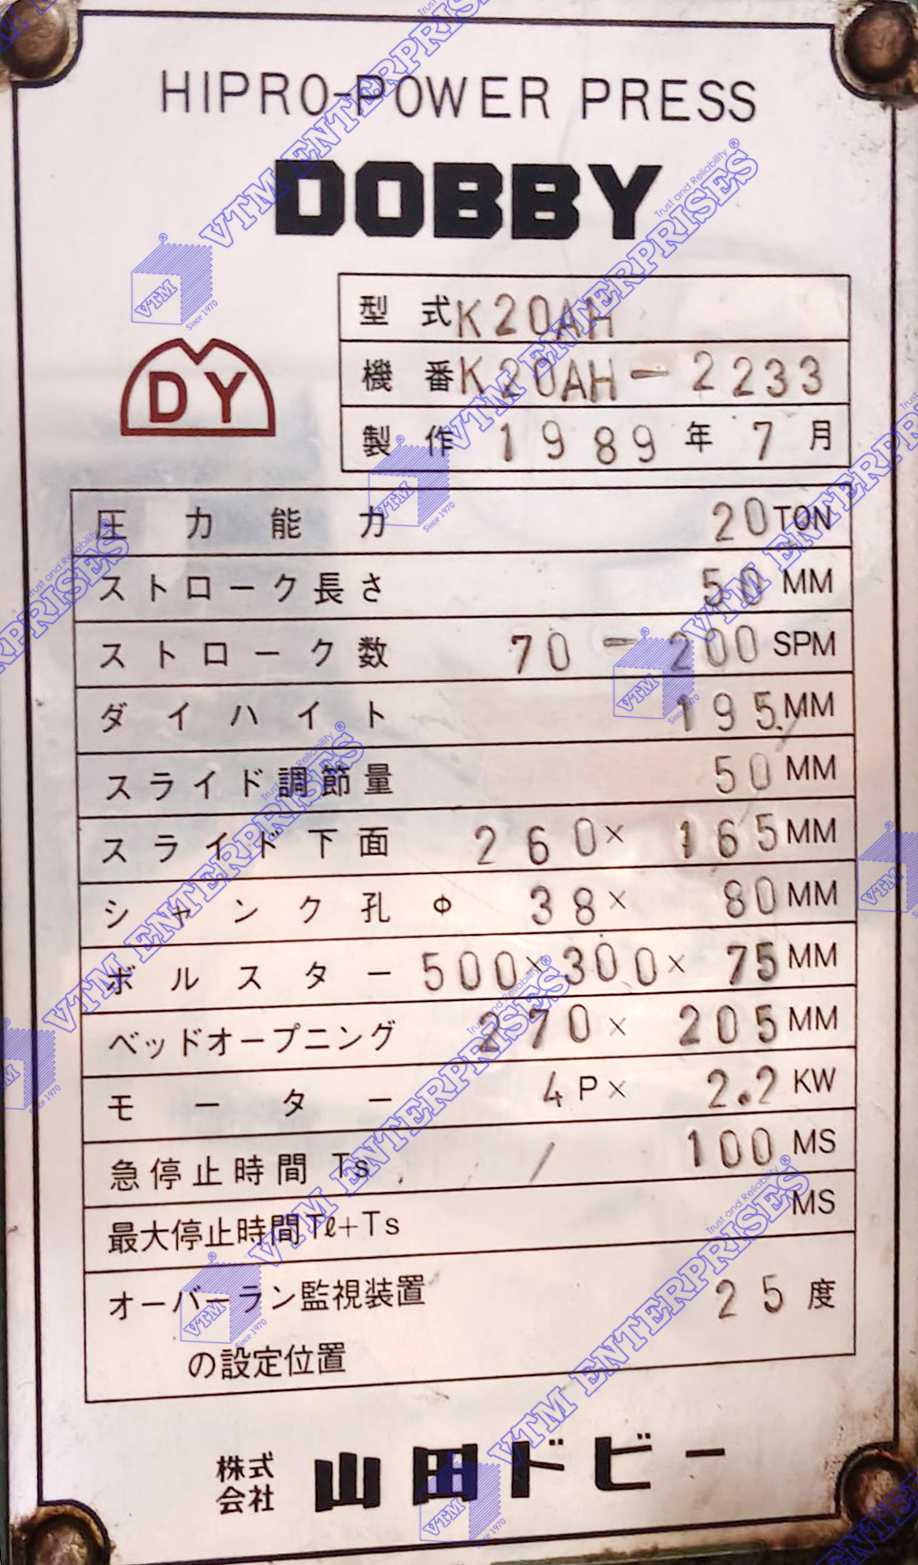 HIPRO-POWER PRESS
DOBBY
DY
型式 K20AH
機番 K20AH-2233
製作 1989年 7月
圧力能力 20 TON
ストローク長さ 50 MM
ストローク数 70-200 SPM
ダイハイト 195 MM
スライド調節量 50 MM
スライド下面 260× 165 MM
シャンク孔 Φ 38× 80 MM
ボルスター 500×300× 75 MM
ベッドオープニング 270× 205 MM
モーター 4P× 2.2 KW
急停止時間 Ts / 100 MS
最大停止時間 Tℓ+Ts MS
オーバーラン監視装置 25 度
の設定位置
株式会社 山田ドビー
VTM ENTERPRISES
Trust and Reliability
VTM
Since 1970